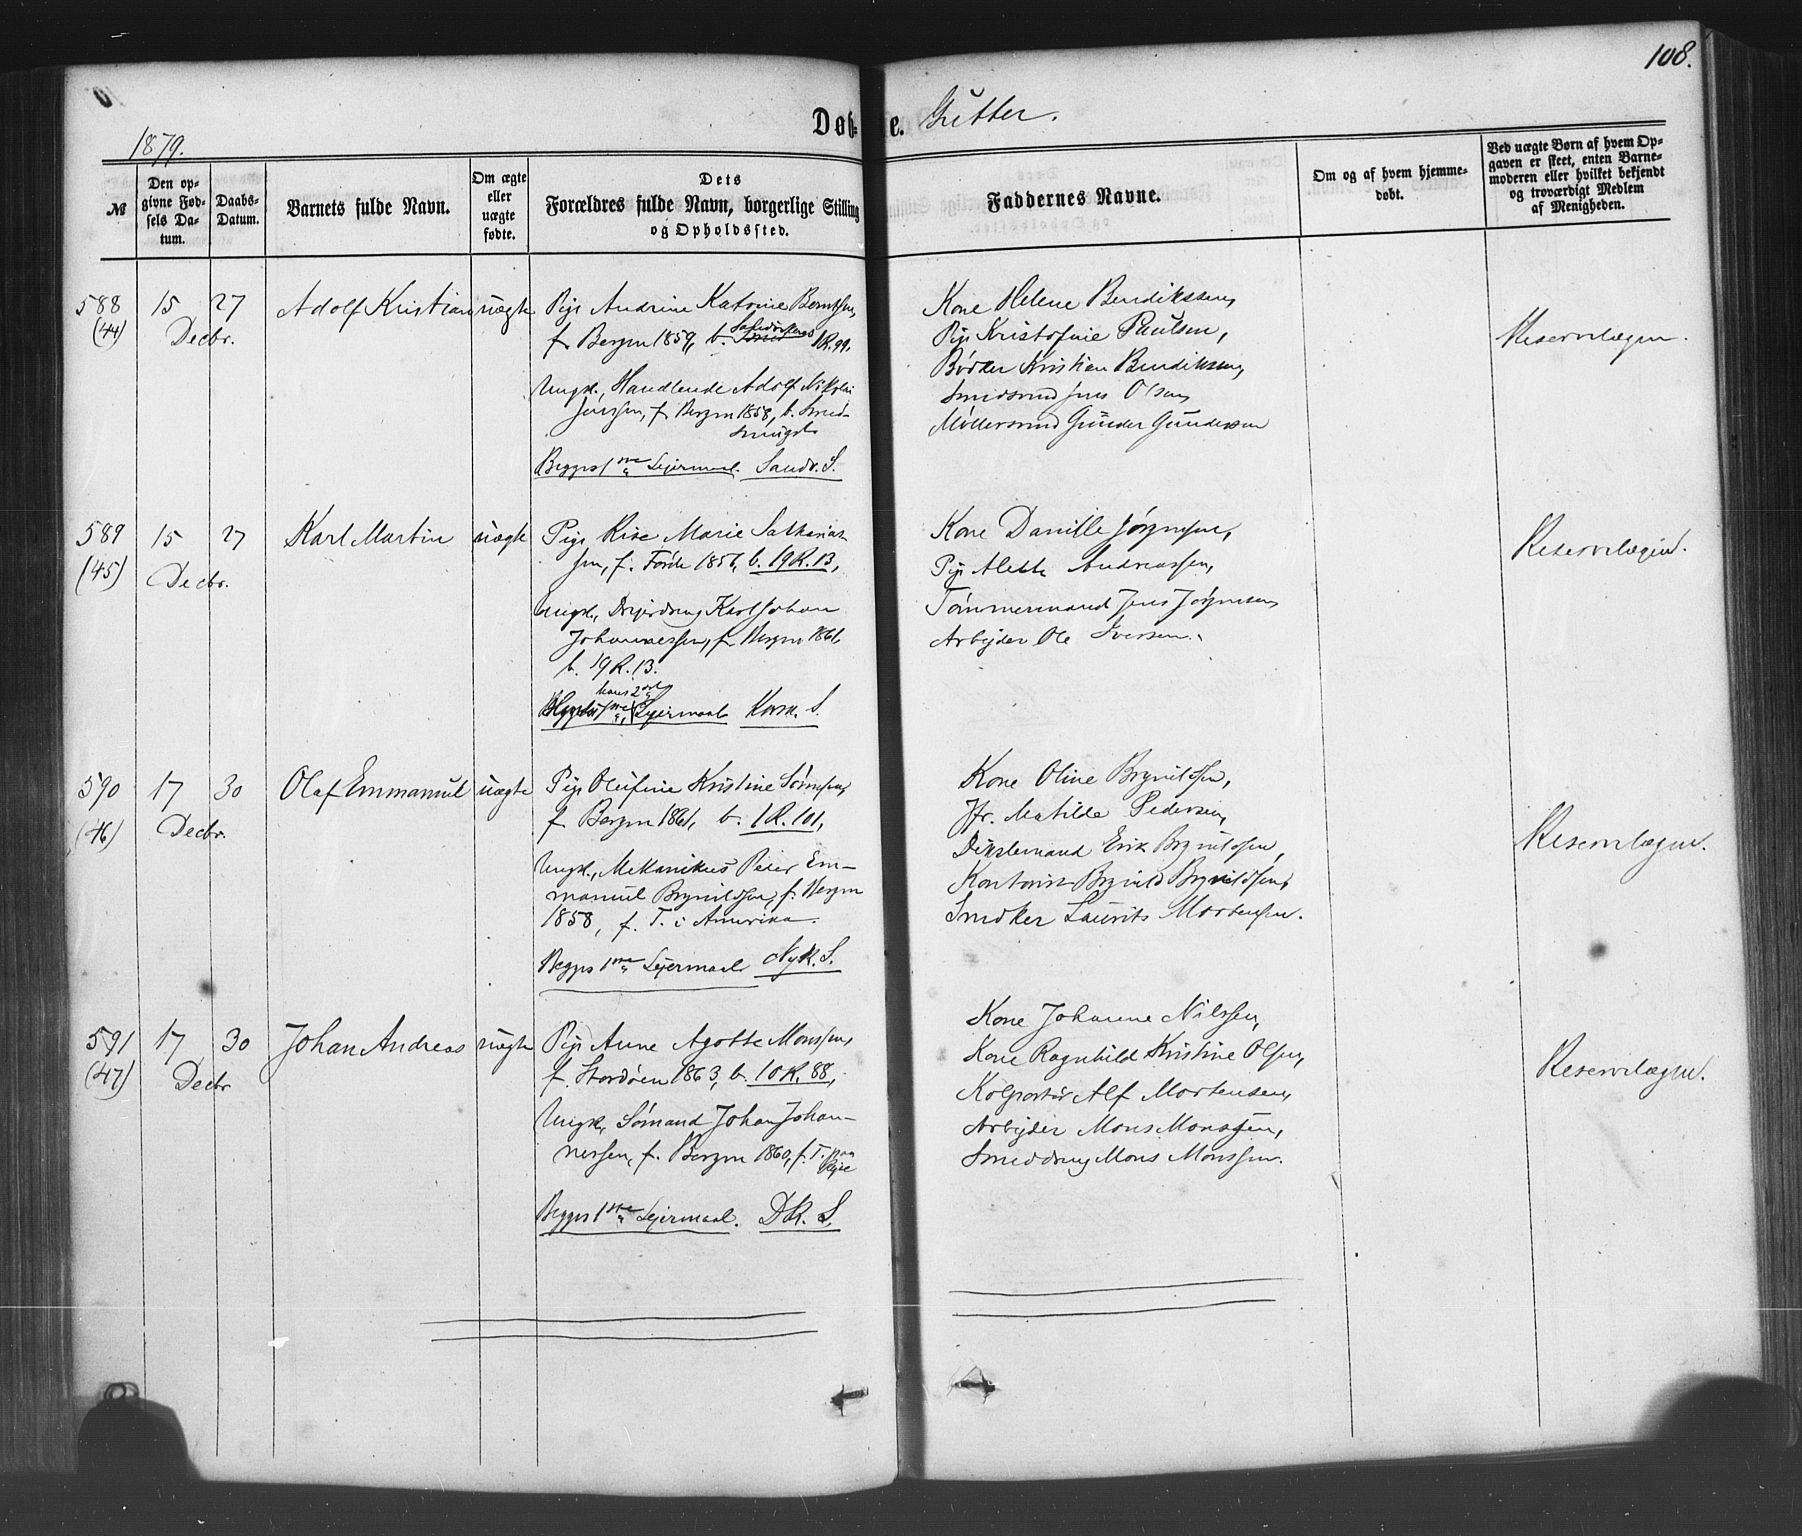 108.
Døb-e. Gutter.
1879.
№
Den opgivne Fødsels Datum.
Daabs-Datum.
Barnets fulde Navn.
Om ægte eller uægte fødte.
Dets Forældres fulde Navn, borgerlige Stilling og Opholdssted.
Faddernes Navne.
Om og af hvem hjemmedøbt.
Ved uægte Børn af hvem Opgaven er skeet, enten Barnemoderen eller hvilket bekjendt og troværdigt Medlem af Menigheden.
588 (44)
15 27 Decbr.
Adolf Kristian
uægte
Pige Andrine Katrine Berntsen,
f. Bergen 1859, b. Sandvikens 1R.99,
Ungk., Handlende Adolf Nikolai
Jensen, f. Bergen 1858, b. Smed-
smuget
Begges 1me Lejermaal. Sandv. S.
Kone Helene Bendikssen,
Pige Kristofine Paulsen,
Bødker Kristian Bendikssen,
Smedsvend Jens Olsen,
Møllersvend Gunder Gundersen
Reservelægen.
589 (45)
15 27 Decbr.
Karl Martin
uægte
Pige Marie Sakarias-
sen, f. Førde 1856, b. 19R.13,
Ungk., Dreierdreng Karl Johan
Johannessen, f. Bergen 1861,
b. 19R.13.
hans 2det
1me Lejermaal Korsk. S.
Kone Danille Jørgensen,
Pige Alette Andreassen,
Tømmermand Jens Jørgensen,
Arbejder Ole Iversen.
Reservelægen.
590 (46)
17 30 Decbr.
Olaf Emmanuel
uægte
Pige Olufine Kristine Sørensen,
f. Bergen 1861, b. 1R.101,
Ungk., Mekanikus Peter Em-
manuel Brynildsen, f. Bergen
1858, f. T. i Amerika.
Begges 1me Lejermaal Nyk. S.
Kone Oline Brynildsen,
Jfr. Matilde Pedersen,
Dikslemand Erik Brynildsen,
Kontorist Brynild Brynildsen,
Snedker Laurits Mortensen.
Reservelægen.
591 (47)
17 30 Decbr
Johan Andreas
uægte
Pige Anne Agotte Monssen,
f. Stordøen 1863, b. 10R.88,
Ungk., Sømand Johan Johan-
nessen, f. Bergen 1860, f. T. paa
Rejse
Begges 1me Lejermaal. DK. S.
Kone Johanne Nilssen,
Kone Ragnhild Kristine Olsen,
Kolportør Alf Mortensen,
Arbejder Mons Monssen,
Smeddreng Mons Monssen.
Reservelægen.